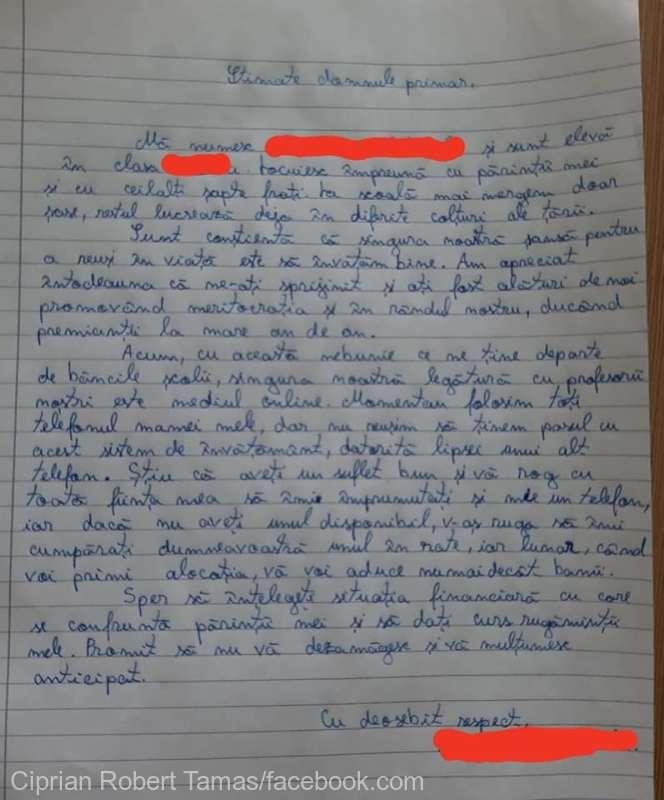 Stimate domnule primar,
Mă numesc și sunt elevă
în clasa Locuiesc împreună cu părinții mei
și cu ceilalti șapte frați. La școală mai mergem doar
șase, restul lucrează deja în diferite colțuri ale țării.
Sunt conștientă că singura noastră șansă pentru
a reuși în viață este să învățăm bine. Am apreciat
întodeauna că ne-ați sprijinit și ați fost alături de noi
promovând meritocrația și în rândul nostru, ducând
premianții la mare an de an.
Acum, cu această nebunie ce ne ține departe
de băncile școlii, singura noastră legătură cu profesorii
noștri este mediul online. Momentan folosim toți
telefonul mamei mele, dar nu reușim să ținem pasul cu
acest sistem de învățământ, datorită lipsei unui alt
telefon. Știu că aveți un suflet bun și vă rog cu
toată ființa mea să îmi împrumutați și mie un telefon,
iar dacă nu aveți unul disponibil, v-aș ruga să îmi
cumpărați dumneavoastră unul în rate, iar lunar, când
voi primi alocația, vă voi aduce numaidecât banii.
Sper să înțelegeți situația financiară cu care
se confruntă părinții mei și să dați curs rugăminții
mele. Promit să nu vă dezamăgesc și vă mulțumesc
anticipat.
Cu deosebit respect,
Ciprian Robert Tamas/facebook.com